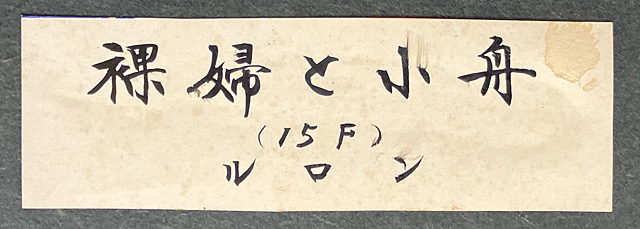 裸婦と小舟
(15F)
ルロン